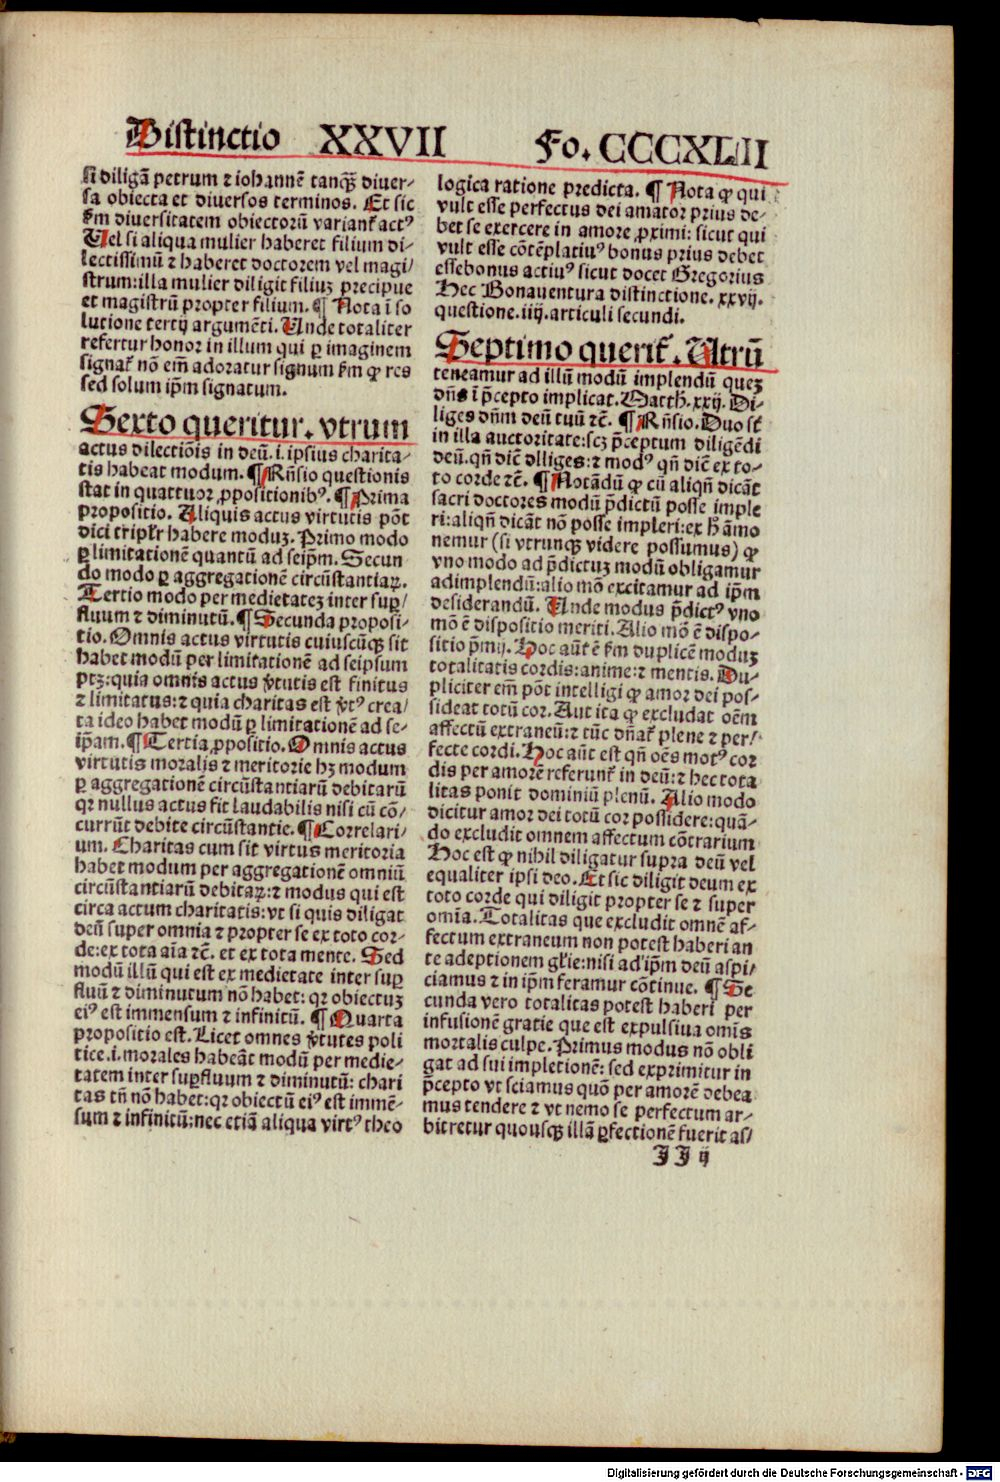 Distinctio XXVII Fo. CCCXLIII
si diligā petrum ⁊ iohannē tanqꝫ diuer-
sa obiecta et diuersos terminos. Et sic
ẜm diuersitatem obiectorū variant᷑ actꝰ
Uel si aliqua mulier haberet filium di-
lectissimū ⁊ haberet doctorem vel magi/
strum: illa mulier diligit filiuꝫ precipue
et magistrū propter filium. ¶ Nota ī so
lutione tertij argumēti. Unde totaliter
refertur honor in illum qui ꝑ imaginem
signat᷑ nō em̄ adoratur signum ẜm ꝙ res
sed solum ip̄m signatum.
Sexto queritur. vtrum
actus dilectiōis in deū .i. ipsius charita-
tis habeat modum. ¶ Rn̄sio questionis
stat in quattuor ꝓpositionibꝰ. ¶ Prima
propositio. Aliquis actus virtutis pōt
dici tripłr habere moduꝫ. Primo modo
ꝑ limitationē quantū ad seip̄m. Secun
do modo ꝑ aggregationē circūstantiaꝝ.
Tertio modo per medietateꝫ inter suꝑ/
fluum ⁊ diminutū. ¶ Secunda proposi-
tio. Omnis actus virtutis cuiuscūqꝫ sit
habet modū per limitationē ad seipsum
ptꝫ: quia omnis actus v̓tutis est finitus
⁊ limitatus: ⁊ quia charitas est v̓tꝰ crea/
ta ideo habet modū ꝑ limitationē ad se-
ip̄am. ¶ Tertia ꝓpositio. Omnis actus
virtutis moralis ⁊ meritorie hꝫ modum
ꝑ aggregationē circūstantiarū debitarū
qꝛ nullus actus fit laudabilis nisi cū cō/
currūt debite circūstantie. ¶ Correlari/
um. Charitas cum sit virtus meritoria
habet modum per aggregationē omniū
circūstantiarū debitaꝝ: ⁊ modus qui est
circa actum charitatis: vt si quis diligat
deū super omnia ⁊ propter se ex toto cor-
de: ex tota aīa ⁊c̄. et ex tota mente. Sed
modū illū qui est ex medietate inter suꝑ
fluū ⁊ diminutum nō habet: qꝛ obiectuꝫ
eiꝰ est immensum ⁊ infinitū. ¶ Quarta
propositio est. Licet omnes v̓tutes poli
tice .i. morales habeāt modū per medie-
tatem inter suꝑfluum ⁊ diminutū: chari
tas tn̄ nō habet: qꝛ obiectū eiꝰ est immē-
sum ⁊ infinitū: nec etiā aliqua virtꝰ theo
logica ratione predicta. ¶ Nota ꝙ qui
vult esse perfectus dei amator prius de-
bet se exercere in amore ꝓximi: sicut qui
vult esse cōtēplatiuꝰ bonus prius debet
essebonus actiuꝰ sicut docet Gregorius
Hec Bonauentura distinctione. xxvij.
questione. iiij. articuli secundi.
Septimo querit᷑. Utrū
teneamur ad illū modū implendū queꝫ
dn̄s ī p̄cepto implicat. Matth. xxij. Di-
liges dn̄m deū tuū ⁊c̄. ¶ Rn̄sio. Duo st̄
in illa auctoritate: scꝫ p̄ceptum diligēdi
deū. qn̄ dic̄ diliges: ⁊ modꝰ qn̄ dic̄ ex to-
to corde ⁊c̄. ¶ Notādū ꝙ cū aliqn̄ dicāt
sacri doctores modū p̄dictū posse imple
ri: aliqn̄ dicāt nō posse impleri: ex h̄ āmo
nemur (si vtrunqꝫ videre possumus) ꝙ
vno modo ad p̄dictuꝫ modū obligamur
adimplendū: alio mō excitamur ad ip̄m
desiderandū. Unde modus p̄dictꝰ vno
mō ē dispositio meriti. Alio mō ē dispo-
sitio p̄mij. Hoc aūt ē ẜm duplicē moduꝫ
totalitatis cordis: anime: ⁊ mentis. Du-
pliciter em̄ pōt intelligi ꝙ amor dei pos-
sideat totū cor. Aut ita ꝙ excludat oēm
affectū extraneū: ⁊ tūc dn̄at᷑ plene ⁊ per/
fecte cordi. Hoc aūt est qn̄ oēs motꝰ cor
dis per amorē referunt᷑ in deū: ⁊ hec tota
litas ponit dominiū plenū. Alio modo
dicitur amor dei totū cor possidere: quā-
do excludit omnem affectum cōtrarium
Hoc est ꝙ nihil diligatur supra deū vel
equaliter ipsi deo. Et sic diligit deum ex
toto corde qui diligit propter se ⁊ super
omīa. Totalitas que excludit omnē af-
fectum extraneum non potest haberi an
te adeptionem głie: nisi ad ip̄m deū aspi/
ciamus ⁊ in ip̄m feramur cōtinue. ¶ Se
cunda vero totalitas potest haberi per
infusionē gratie que est expulsiua omīs
mortalis culpe. Primus modus nō obli
gat ad sui impletionē: sed exprimitur in
p̄cepto vt sciamus quō per amorē debea
mus tendere ⁊ vt nemo se perfectum ar-
bitretur quousqꝫ illā ꝑfectionē fuerit as/
JJ ij
Digitalisierung gefördert durch die Deutsche Forschungsgemeinschaft - DFG